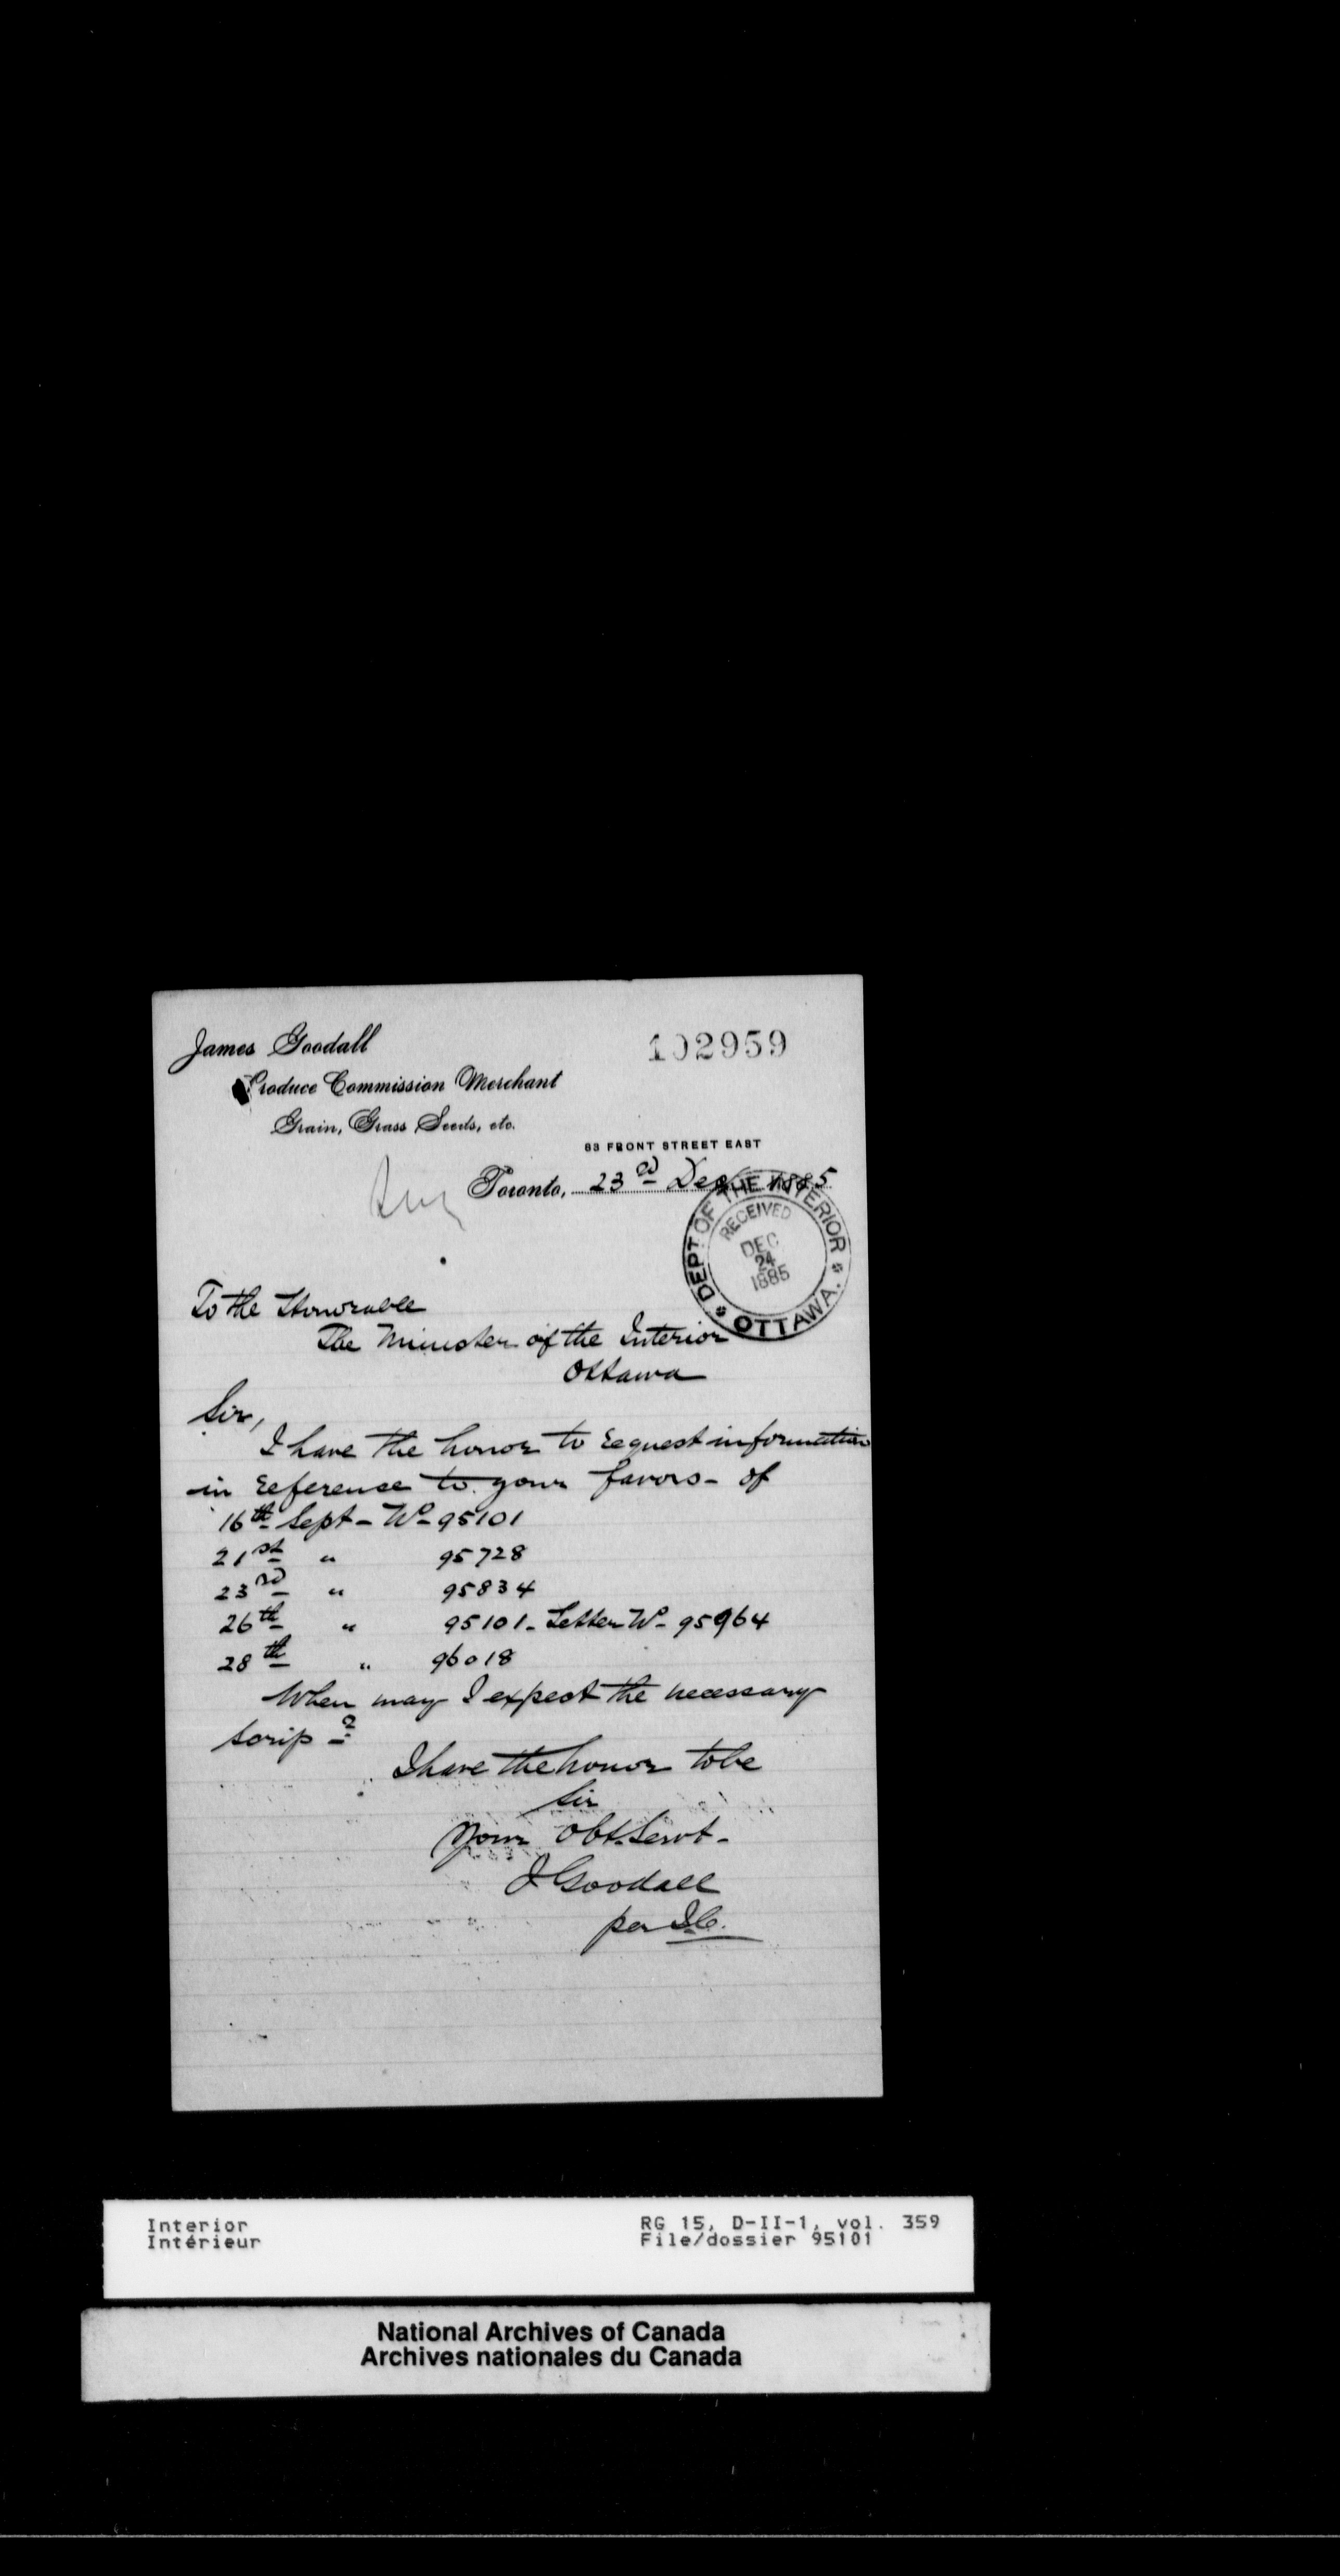 James Goodall
Produce Commission Merchant
Grain, Grass Seeds, etc.
102959
83 FRONT STREET EAST
Toronto, 23rd Dec 1885
DEPT OF THE INTERIOR
RECEIVED
DEC
24
1885
OTTAWA.
To the Honorable
The Minister of the Interior
Ottawa
Sir,
I have the honor to request information
in reference to your favors - of
16th Sept - No - 95101
21st " 95728
23rd " 95834
26th " 95101 - Letter No - 95964
28th " 96018
When may I expect the necessary
scrip - ?
I have the honor to be
Sir
Your Obt. Servt -
J Goodall
per
Interior
Intérieur
RG 15, D-II-1, vol. 359
File/dossier 95101
National Archives of Canada
Archives nationales du Canada